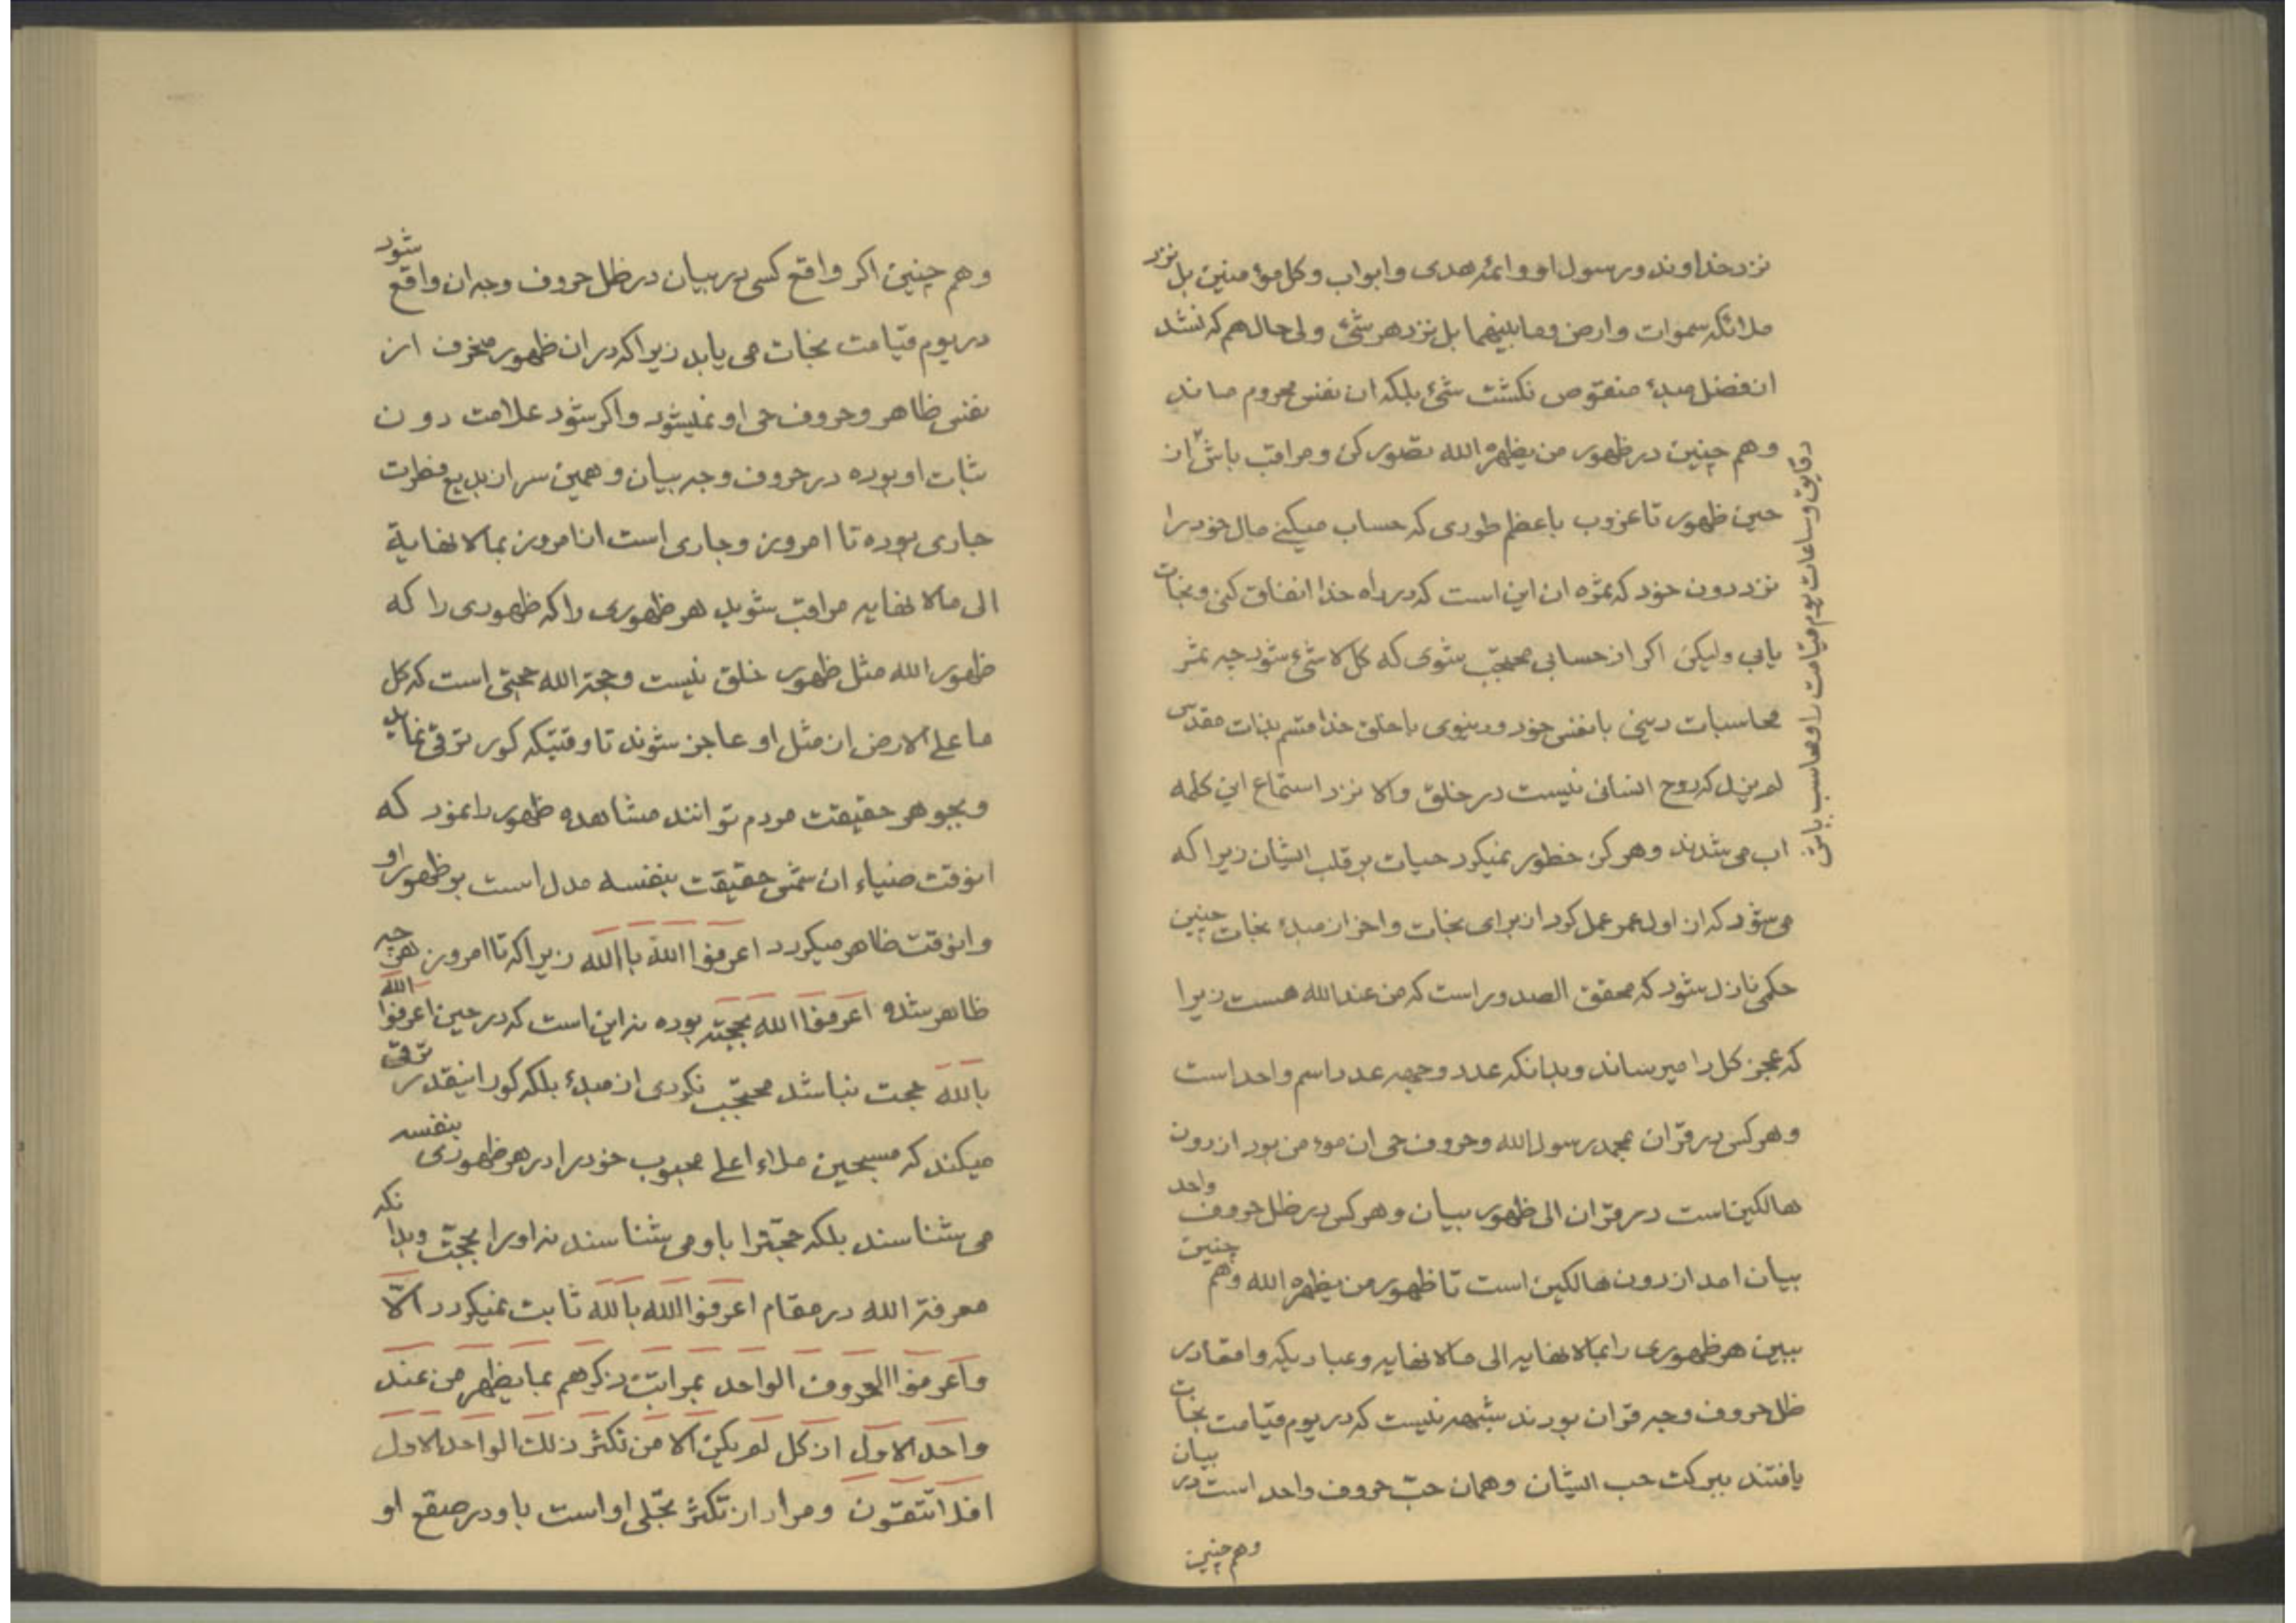 نزد خداوند و رسول او و ائمه هدی و ابواب و کل مؤمنین بل نزد
ملائکه سموات و ارض و ما بینهما بل نزد هر شئ ولی حال هم که نشد
از فضل مبدء منقوص نکشت شئ بلکه ان نفس محروم ماند
و هم چنین در ظهور من یظهره الله تصور کن و مراقب باش از
دقایق و ساعات یوم قیامت را و محاسب باش
حین ظهور تا غروب باعظم طوری که حساب میکنی مال خود را
نزد دون خود که ثمره ان این است که در راه خدا انفاق کنی و نجات
یابی ولیکن اکر از حسابی محتجب شوی که کل لا شئ شود چه ثمر
محاسبات دینی با نفس خود و دنیوی با خلق خدا قسم بذات مقدس
لم یزل که روح انسانی نیست در خلق والا نزد استماع این کلمه
اب می شدند و هرکز خطور نمیکرد حیات بر قلب ایشان زیرا که
می شود که از اول عمر عمل کرد از برای نجات و اخر از مبدء نجات چنین
حکمی نازل شود که محقق الصدور است که من عند الله هست زیرا
که عجز کل را میرساند و بدانکه عدد وجهه عدد اسم واحد است
و هر کس در قران بمحمد رسول الله و حروف حی ان مؤمن بود از دون
هالکین است در قران الی ظهور بیان و هر کس در ظل حروف واحد
بیان امد از دون هالکین است تا ظهور من یظهره الله و هم چنین
ببین هر ظهوری را بما لا نهایه الی ما لا نهایه و عبادیکه واقعا در
ظل حروف وجه قران بودند شبهه نیست که در یوم قیامت نجات
یافتند ببرکت حب ایشان و همان حب حروف واحد است در بیان
و هم چنین
و هم چنین اکر واقع کسی در بیان در ظل حروف وجه ان واقع شود
در یوم قیامت نجات می یابد زیرا که در ان ظهور منحرف از
نفس ظاهر و حروف حی او نمیشود و اکر شود علامت دون
ثبات او بوده در حروف وجه بیان و همین سر از بدیع فطرت
جاری بوده تا امروز و جاری است از امروز بما لا نهایة
الی ما لا نهایه مراقب شوید هر ظهوری را که ظهوری را که
ظهور الله مثل ظهور خلق نیست و حجة الله حجتی است که کل
ما علی الارض از مثل او عاجز شوند تا وقتیکه کور ترقی نماید
و بجوهر حقیقت مردم توانند مشاهده ظهور را نمود که
انوقت ضیاء ان شمس حقیقت بنفسه مدل است بر ظهور او
و انوقت ظاهر میکردد اعرفوا الله باالله زیرا که تا امروز هر چه
ظاهر شده اعرفوا الله بحجته بوده نه این است که در حین اعرفوا الله
بالله حجت نباشد محتجب نکردی از مبدء بلکه کور اینقدر ترقی
میکند که مسبحین ملاء اعلی محبوب خود را در هر ظهوری بنفسه
می شناسند بلکه حجت را باو می شناسند نه او را بحجت و بدانکه
معرفة الله در مقام اعرفوا الله بالله ثابت نمیکردد الّا
و اعرفوا الحروف الواحد بمراتب ذکرهم بما یظهر من عند
واحد الاول از کل لم یکن الا من تکثر ذلك الواحد الاول
افلا تتقون و مراد از تکثر تجلی او است باو در صقع او